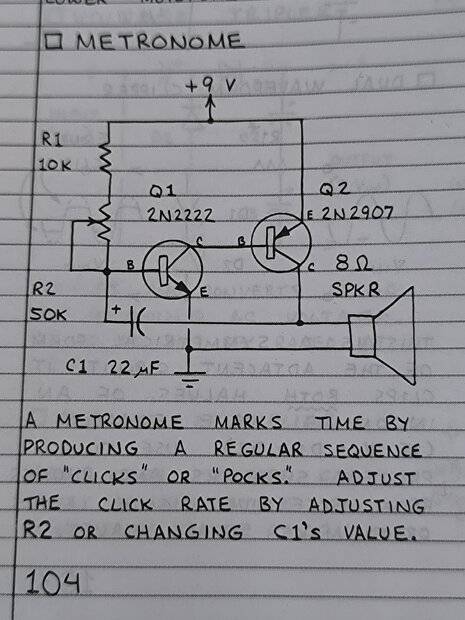 □ METRONOME
+9 V
R1
10K
Q1
2N2222
Q2
2N2907
E
C
B
B
C
E
8Ω
SPKR
R2
50K
+
C1 22 µF
A METRONOME MARKS TIME BY
PRODUCING A REGULAR SEQUENCE
OF "CLICKS" OR "POCKS." ADJUST
THE CLICK RATE BY ADJUSTING
R2 OR CHANGING C1's VALUE.
104